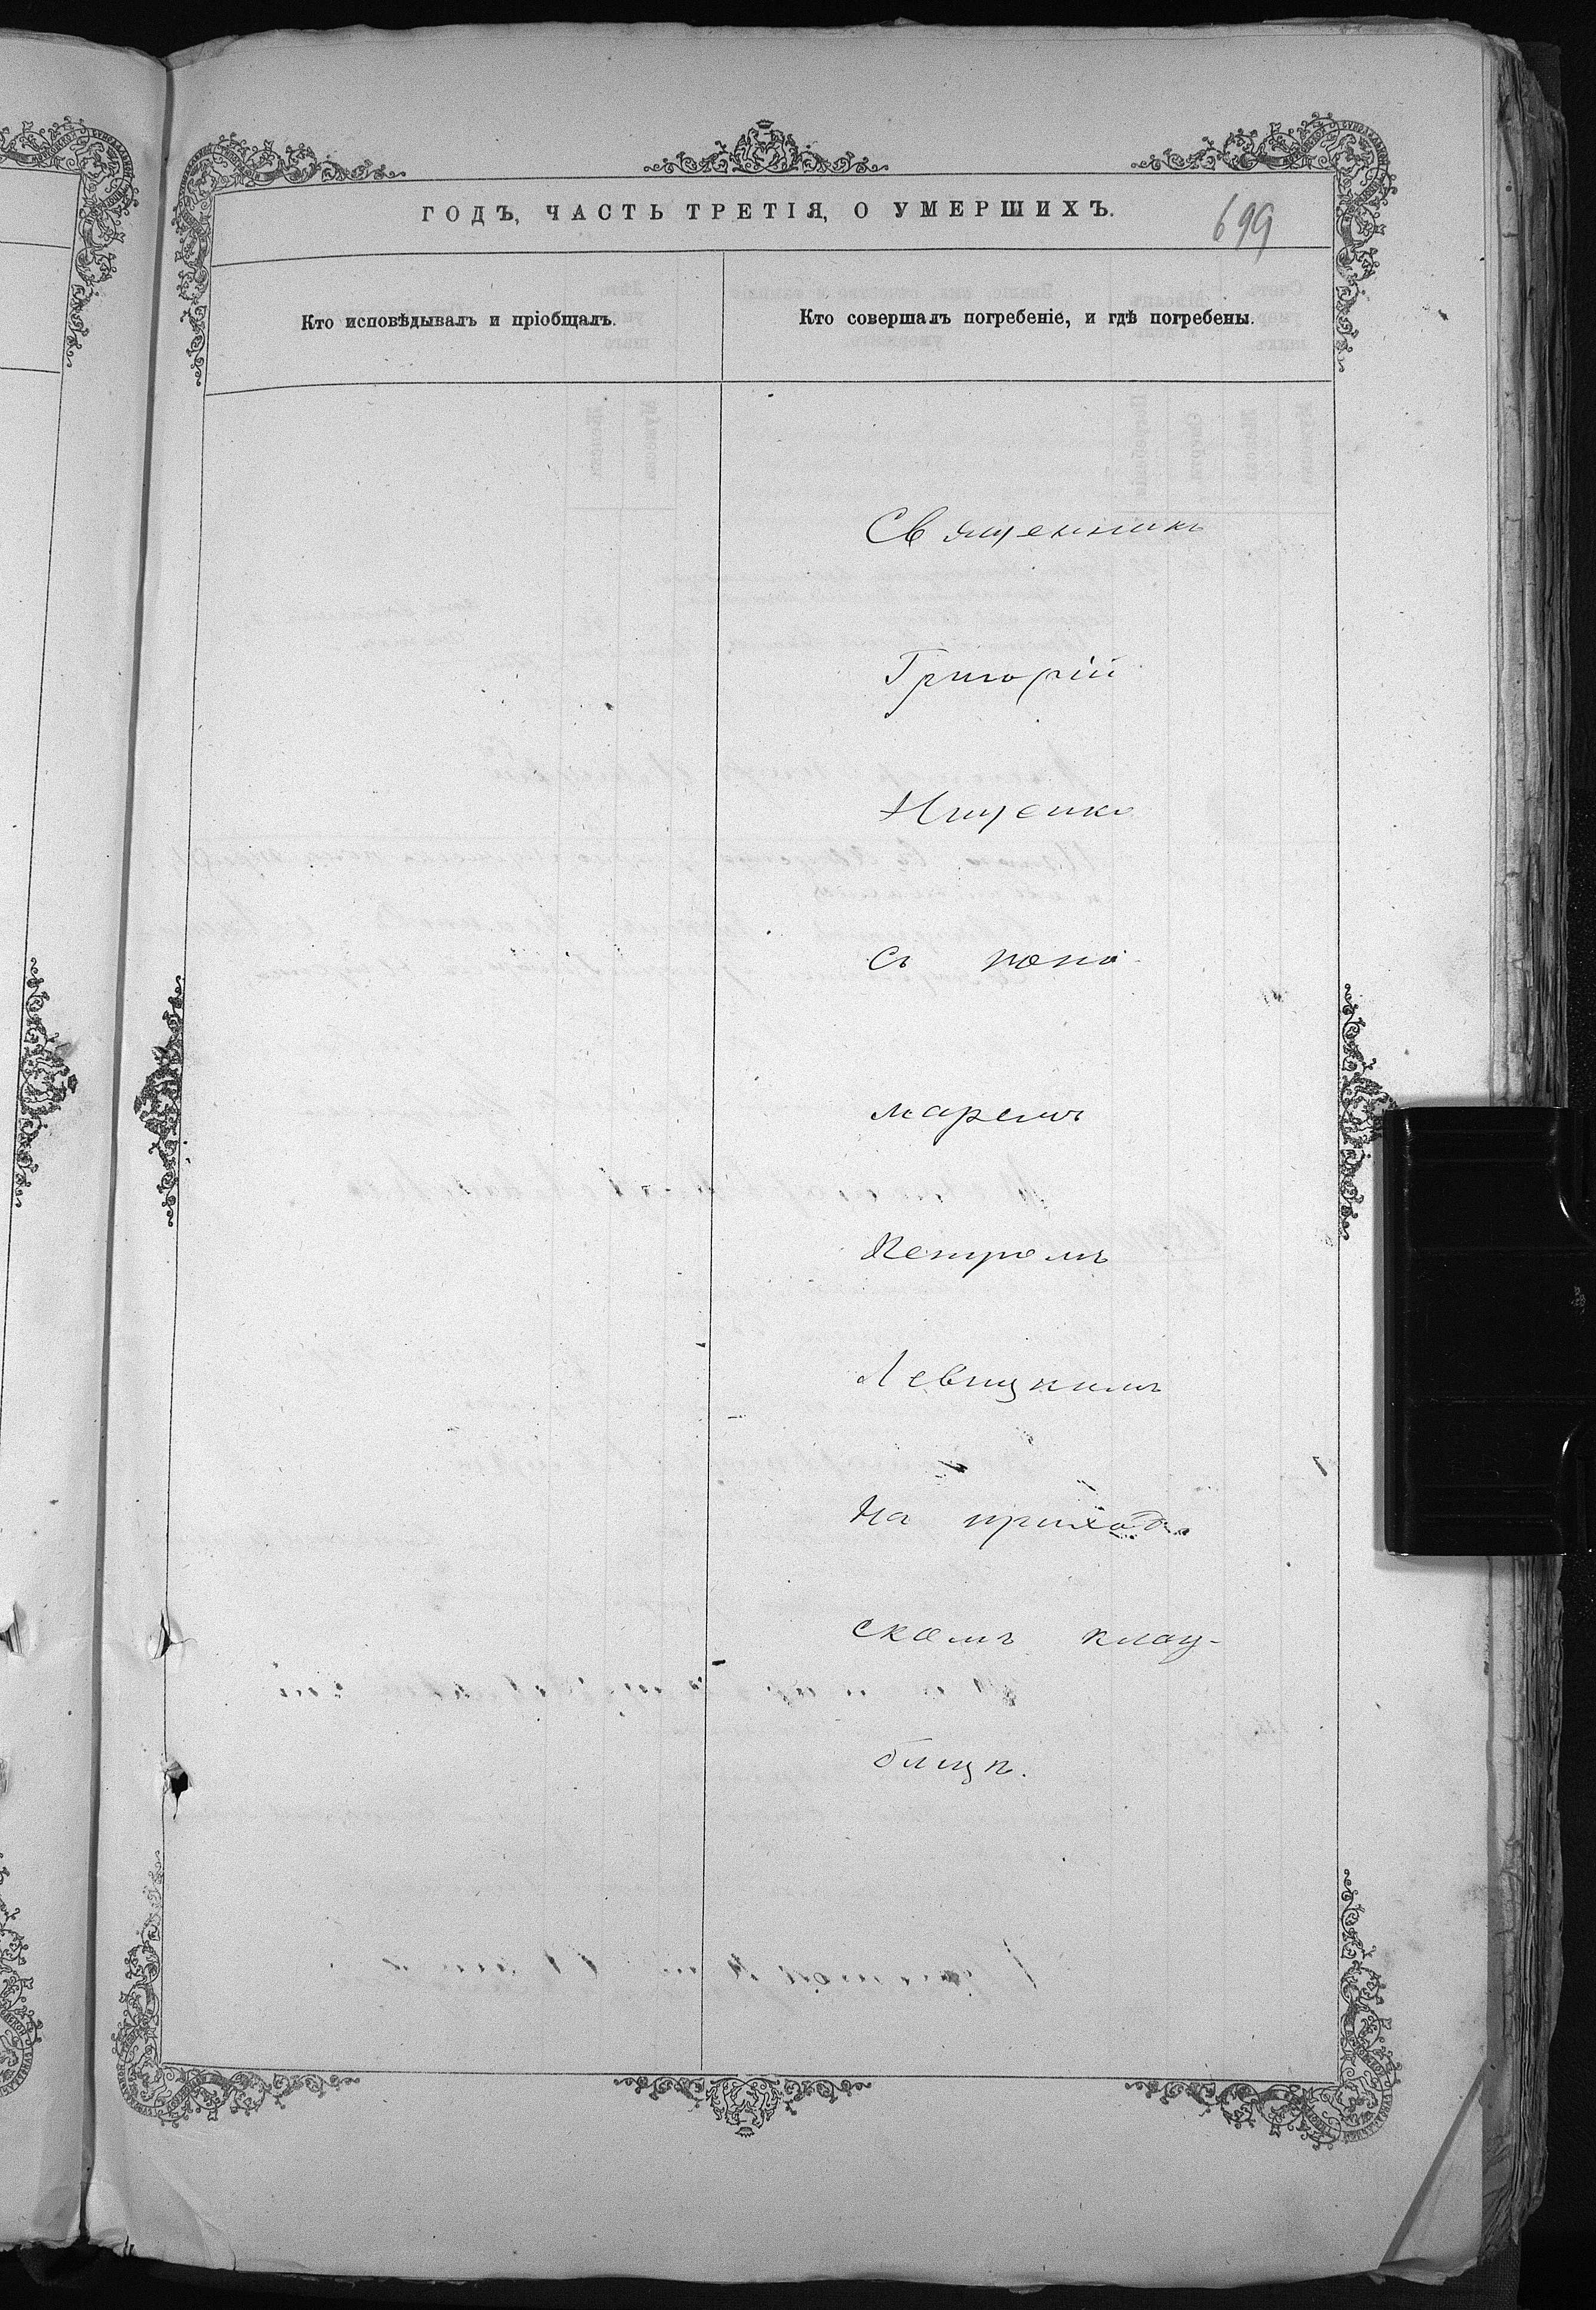 ГОДЪ, ЧАСТЬ ТРЕТІЯ, О УМЕРШИХЪ.
699
Кто исповѣдывалъ и пріобщалъ.
Кто совершалъ погребеніе, и гдѣ погребены.
Священникъ
Григорій
Нищенко
съ поно-
маремъ
Петромъ
Левицкимъ
На приход
скомъ клад-
бищѣ.